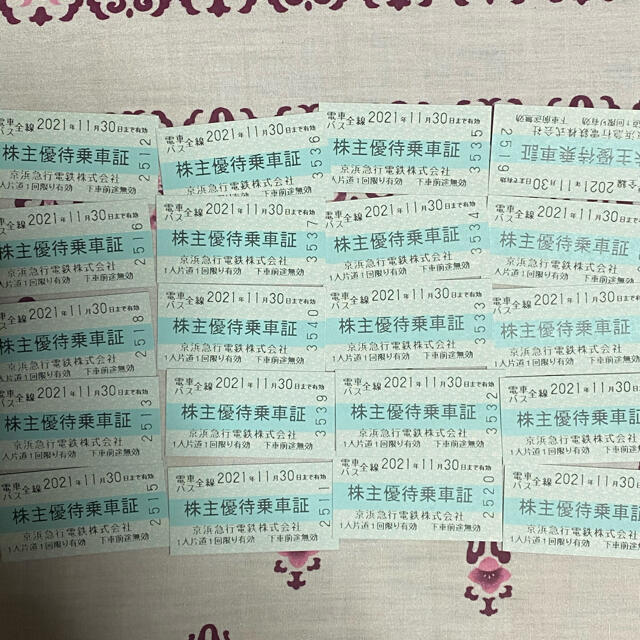 電車バス全線 2021年11月30日まで有効
株主優待乗車証
京浜急行電鉄株式会社
1人片道1回限り有効 下車前途無効
2512
電車バス全線 2021年11月30日まで有効
株主優待乗車証
京浜急行電鉄株式会社
1人片道1回限り有効 下車前途無効
3536
電車バス全線 2021年11月30日まで有効
株主優待乗車証
京浜急行電鉄株式会社
1人片道1回限り有効 下車前途無効
3535
全線 2021年11月30日まで有効
主優待乗車証
京浜急行電鉄株式会社
1回限り有効 下車前途無効
2519
全線 2021年11月30日まで有効
株主優待乗車証
京浜急行電鉄株式会社
1人片道1回限り有効 下車前途無効
2516
電車バス全線 2021年11月30日まで有効
株主優待乗車証
京浜急行電鉄株式会社
1人片道1回限り有効 下車前途無効
3537
電車バス全線 2021年11月30日まで有効
株主優待乗車証
京浜急行電鉄株式会社
1人片道1回限り有効 下車前途無効
3534
電車バス全線 2021年11月30日
株主優待乗車証
京浜急行電鉄株式会社
1人片道1回限り有効 下車前途
全線 2021年11月30日まで有効
株主優待乗車証
京浜急行電鉄株式会社
1人片道1回限り有効 下車前途無効
2518
電車バス全線 2021年11月30日まで有効
株主優待乗車証
京浜急行電鉄株式会社
1人片道1回限り有効 下車前途無効
3540
電車バス全線 2021年11月30日まで有効
株主優待乗車証
京浜急行電鉄株式会社
1人片道1回限り有効 下車前途無効
3533
電車バス全線 2021年11月30日
株主優待乗車証
京浜急行電鉄株式会社
1人片道1回限り有効 下車前途
電車バス全線 2021年11月30日まで有効
株主優待乗車証
京浜急行電鉄株式会社
1人片道1回限り有効 下車前途無効
2513
電車バス全線 2021年11月30日まで有効
株主優待乗車証
京浜急行電鉄株式会社
1人片道1回限り有効 下車前途無効
3539
電車バス全線 2021年11月30日まで有効
株主優待乗車証
京浜急行電鉄株式会社
1人片道1回限り有効 下車前途無効
3532
電車バス全線 2021年11月30
株主優待乗車
京浜急行電鉄株式会
1人片道1回限り有効 下車
電車バス全線 2021年11月30日まで有効
株主優待乗車証
京浜急行電鉄株式会社
1人片道1回限り有効 下車前途無効
2515
電車バス全線 2021年11月30日まで有効
株主優待乗車証
京浜急行電鉄株式会社
1人片道1回限り有効 下車前途無効
2511
電車バス全線 2021年11月30日まで有効
株主優待乗車証
京浜急行電鉄株式会社
1人片道1回限り有効 下車前途無効
2520
電車バス全線 2021年11月30
株主優待乗車
京浜急行電鉄株式会
1人片道1回限り有効 下車